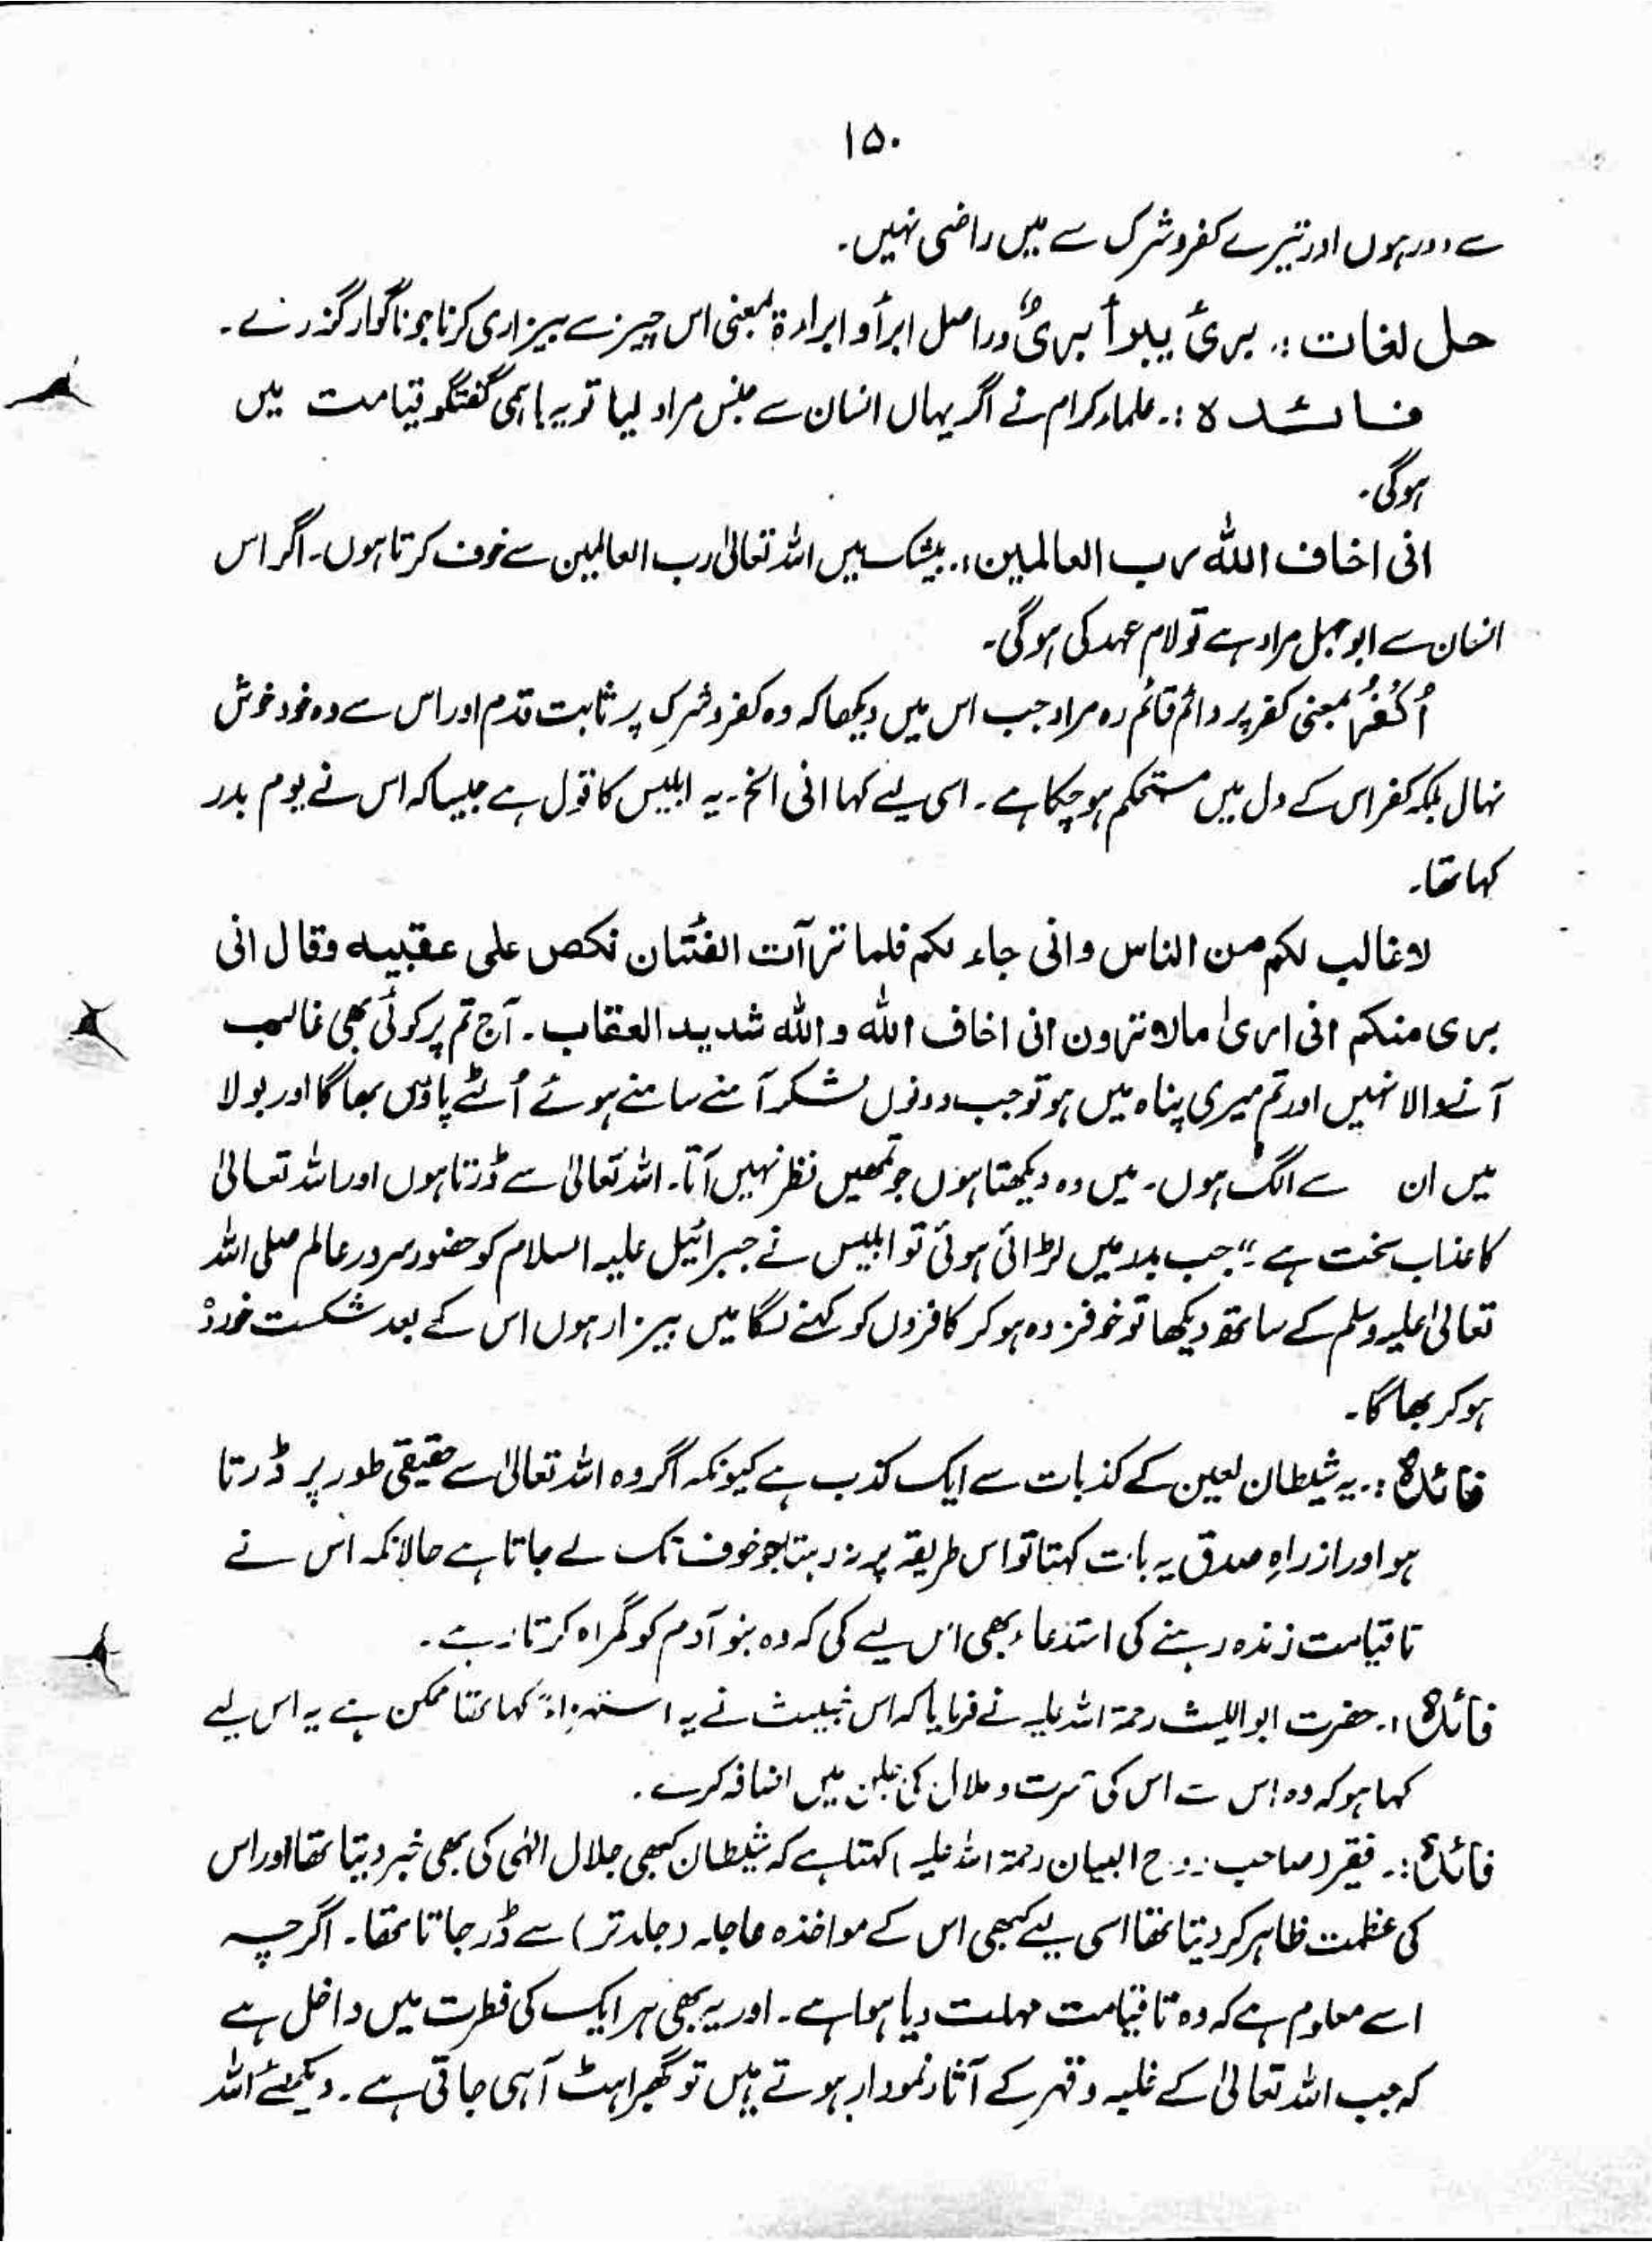 ۱۵۰
سے دور ہوں اور تیرے کفر و شرک سے میں راضی نہیں۔
حل لغات :۔ بریٔ یبرأ بریٌٔ دراصل ابرأ و ابراءۃ بمعنی اس چیز سے بیزاری کرنا جو ناگوار گذرے۔
فائدہ :۔ علماء کرام نے اگر یہاں انسان سے جنس مراد لیا تو یہ باہمی گفتگو قیامت میں
ہوگی۔
انی اخاف اللہ رب العالمین :۔ بیشک میں اللہ تعالیٰ رب العالمین سے خوف کرتا ہوں۔ اگر اس
انسان سے ابوجہل مراد ہے تو لام عہد کی ہوگی۔
اُکْفُرْ بمعنی کفر پر دائم قائم رہ مراد جب اس میں دیکھا کہ وہ کفر و شرک پر ثابت قدم اور اس سے وہ خود خوش
نہال بلکہ کفر اس کے دل میں مستحکم ہو چکا ہے۔ اسی لیے کہا انی الخ۔ یہ ابلیس کا قول ہے جیسا کہ اس نے یوم بدر
کہا تھا۔
لا غالب لکم من الناس وانی جاء لکم فلما تراٰت الفئتان نکص علی عقبیہ وقال انی
بری منکم انی اریٰ مالا ترون انی اخاف اللہ و اللہ شدید العقاب۔ آج تم پر کوئی بھی غالب
آنے والا نہیں اور تم میری پناہ میں ہو تو جب دونوں لشکر آمنے سامنے ہوئے اُلٹے پاؤں بھاگا اور بولا
میں ان سے الگ ہوں۔ میں وہ دیکھتا ہوں جو تمھیں نظر نہیں آتا۔ اللہ تعالیٰ سے ڈرتا ہوں اور اللہ تعالیٰ
کا عذاب سخت ہے۔" جب بدر میں لڑائی ہوئی تو ابلیس نے جبرائیل علیہ السلام کو حضور سرور عالم صلی اللہ
تعالیٰ علیہ وسلم کے ساتھ دیکھا تو خوفزدہ ہو کر کافروں کو کہنے لگا میں بیزار ہوں اس کے بعد شکست خوردہ
ہو کر بھاگا۔
فائدہ :۔ یہ شیطان لعین کے کذبات سے ایک کذب ہے کیونکہ اگر وہ اللہ تعالیٰ سے حقیقی طور پر ڈرتا
ہو اور از راہِ صدق یہ بات کہتا تو اس طریقہ پر نہ رہتا جو خوف تک لے جاتا ہے حالانکہ اس نے
تا قیامت زندہ رہنے کی استدعاء بھی اس لیے کی کہ وہ بنو آدم کو گمراہ کرتا رہے۔
فائدہ :۔ حضرت ابو اللیث رحمۃ اللہ علیہ نے فرمایا کہ اس خبیث نے یہ استہزاءً کہا تھا ممکن ہے یہ اس لیے
کہا ہو کہ وہ اس سے اس کی حسرت و ملال کی جلن میں اضافہ کرے۔
فائدہ :۔ فقیر (صاحب روح البیان رحمۃ اللہ علیہ) کہتا ہے کہ شیطان کبھی جلال الٰہی کی بھی خبر دیتا تھا اور اس
کی عظمت ظاہر کر دیتا تھا اسی لیے کبھی اس کے مواخذہ عاجلہ (جلد تر) سے ڈر جاتا تھا۔ اگرچہ
اسے معلوم ہے کہ وہ تا قیامت مہلت دیا ہوا ہے۔ اور یہ بھی ہر ایک کی فطرت میں داخل ہے
کہ جب اللہ تعالیٰ کے غلبہ و قہر کے آثار نمودار ہوتے ہیں تو گھبراہٹ آ ہی جاتی ہے۔ دیکھئے اللہ